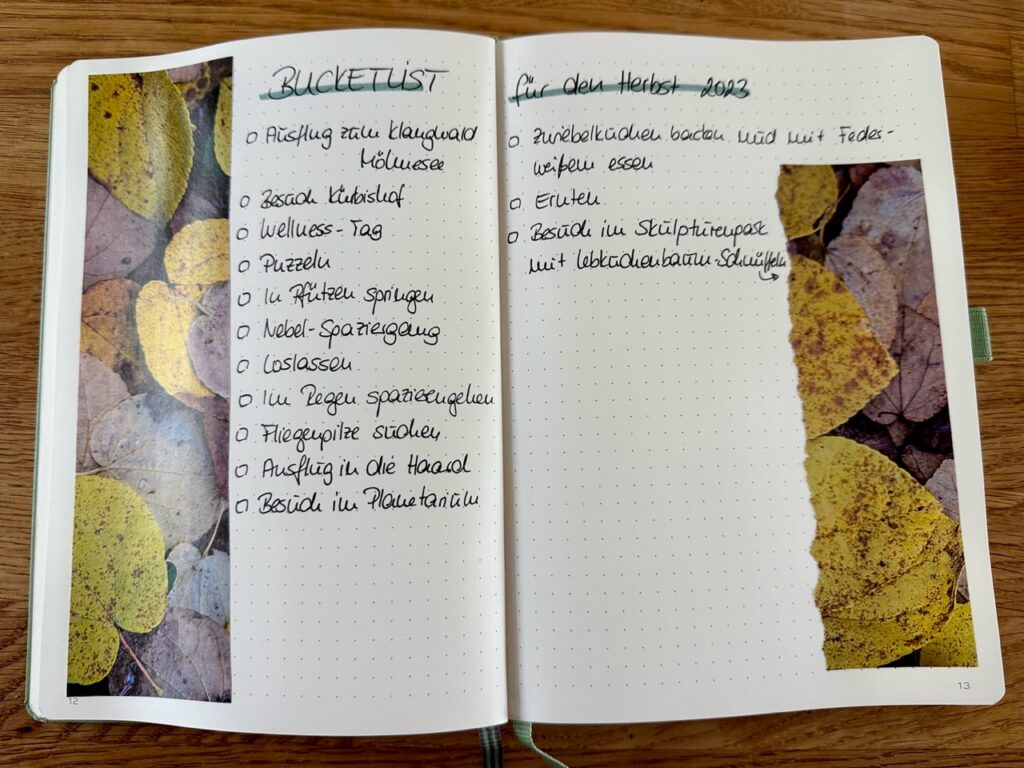 BUCKETLIST
o Ausflug zum Klangwald
Möhnesee
o Besuch Kürbishof
o Wellness-Tag
o Puzzeln
o In Pfützen springen
o Nebel-Spaziergang
o Loslassen
o Im Regen spazierengehen
o Fliegenpilze suchen
o Ausflug in die Haard
o Besuch im Planetarium
12
für den Herbst 2023
o Zwiebelkuchen backen und mit Feder-
weißem essen
o Ernten
o Besuch im Skulpturenpark
mit Lebkuchenbaum-Schnüffeln
13